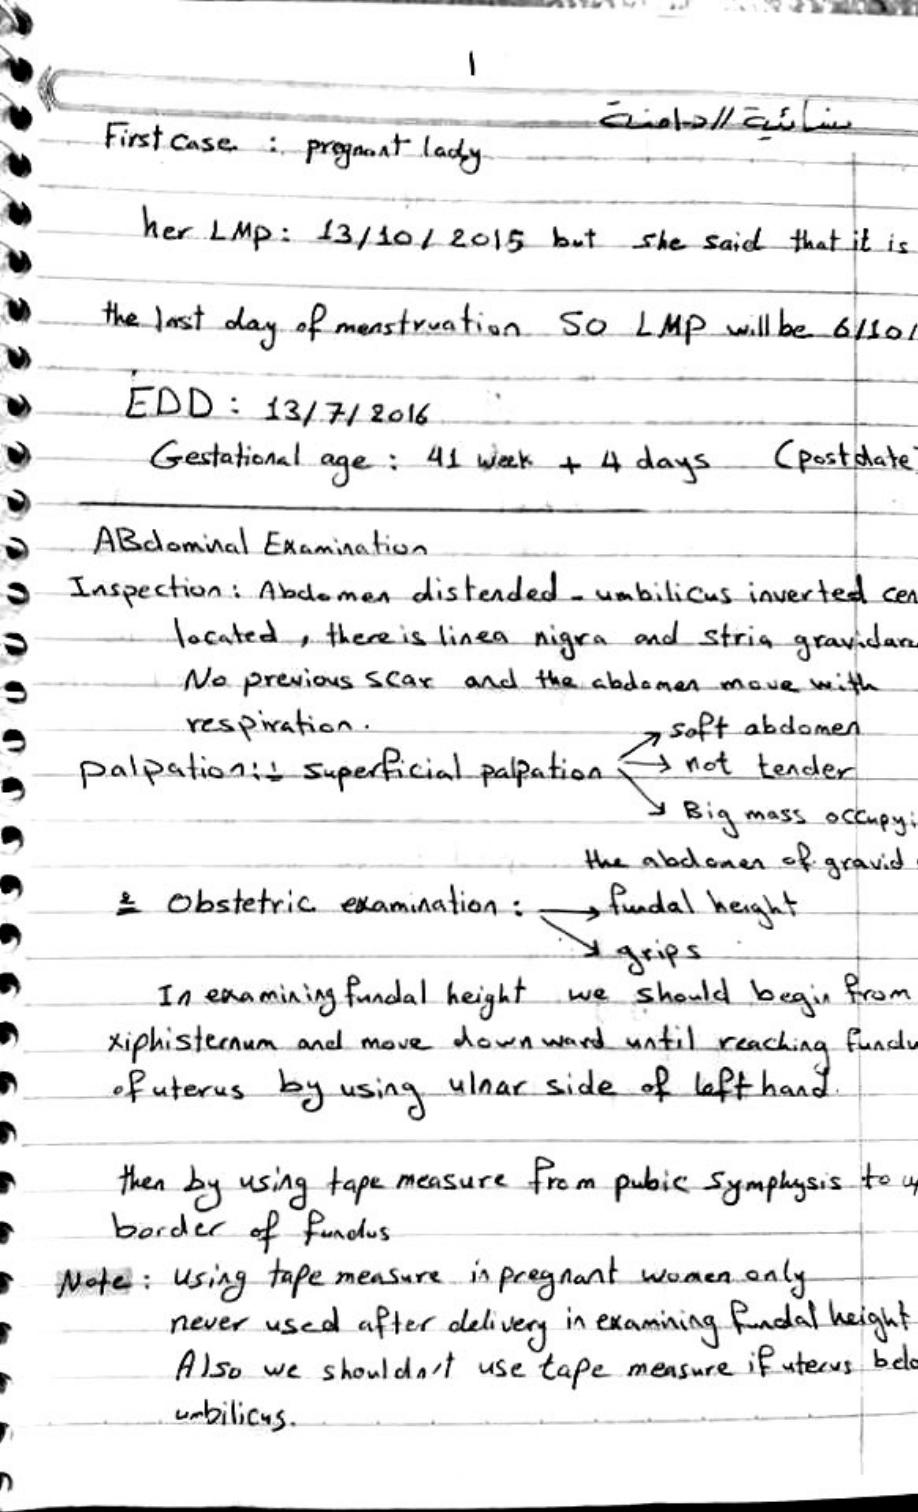 1
نسائية الحاضنة
First case : pregnant lady
her LMP: 13/10/2015 but she said that it is
the last day of menstruation so LMP will be 6/10/
EDD : 13/7/2016
Gestational age : 41 week + 4 days (postdate
ABdominal Examination
Inspection: Abdomen distended - umbilicus inverted cen
located, there is linea nigra and stria gravidar
No previous scar and the abdomen move with
respiration.
soft abdomen
palpation: 1 superficial palpation → not tender
Big mass occupyi
the abdomen of gravid
2 Obstetric examination: → fundal height
grips
In examining fundal height we should begin from
xiphisternum and move downward until reaching fundu
of uterus by using ulnar side of left hand.
then by using tape measure from pubic symphysis to up
border of fundus
Note: Using tape measure in pregnant women only
never used after delivery in examining fundal height
Also we shouldn't use tape measure if uterus belo
umbilicus.